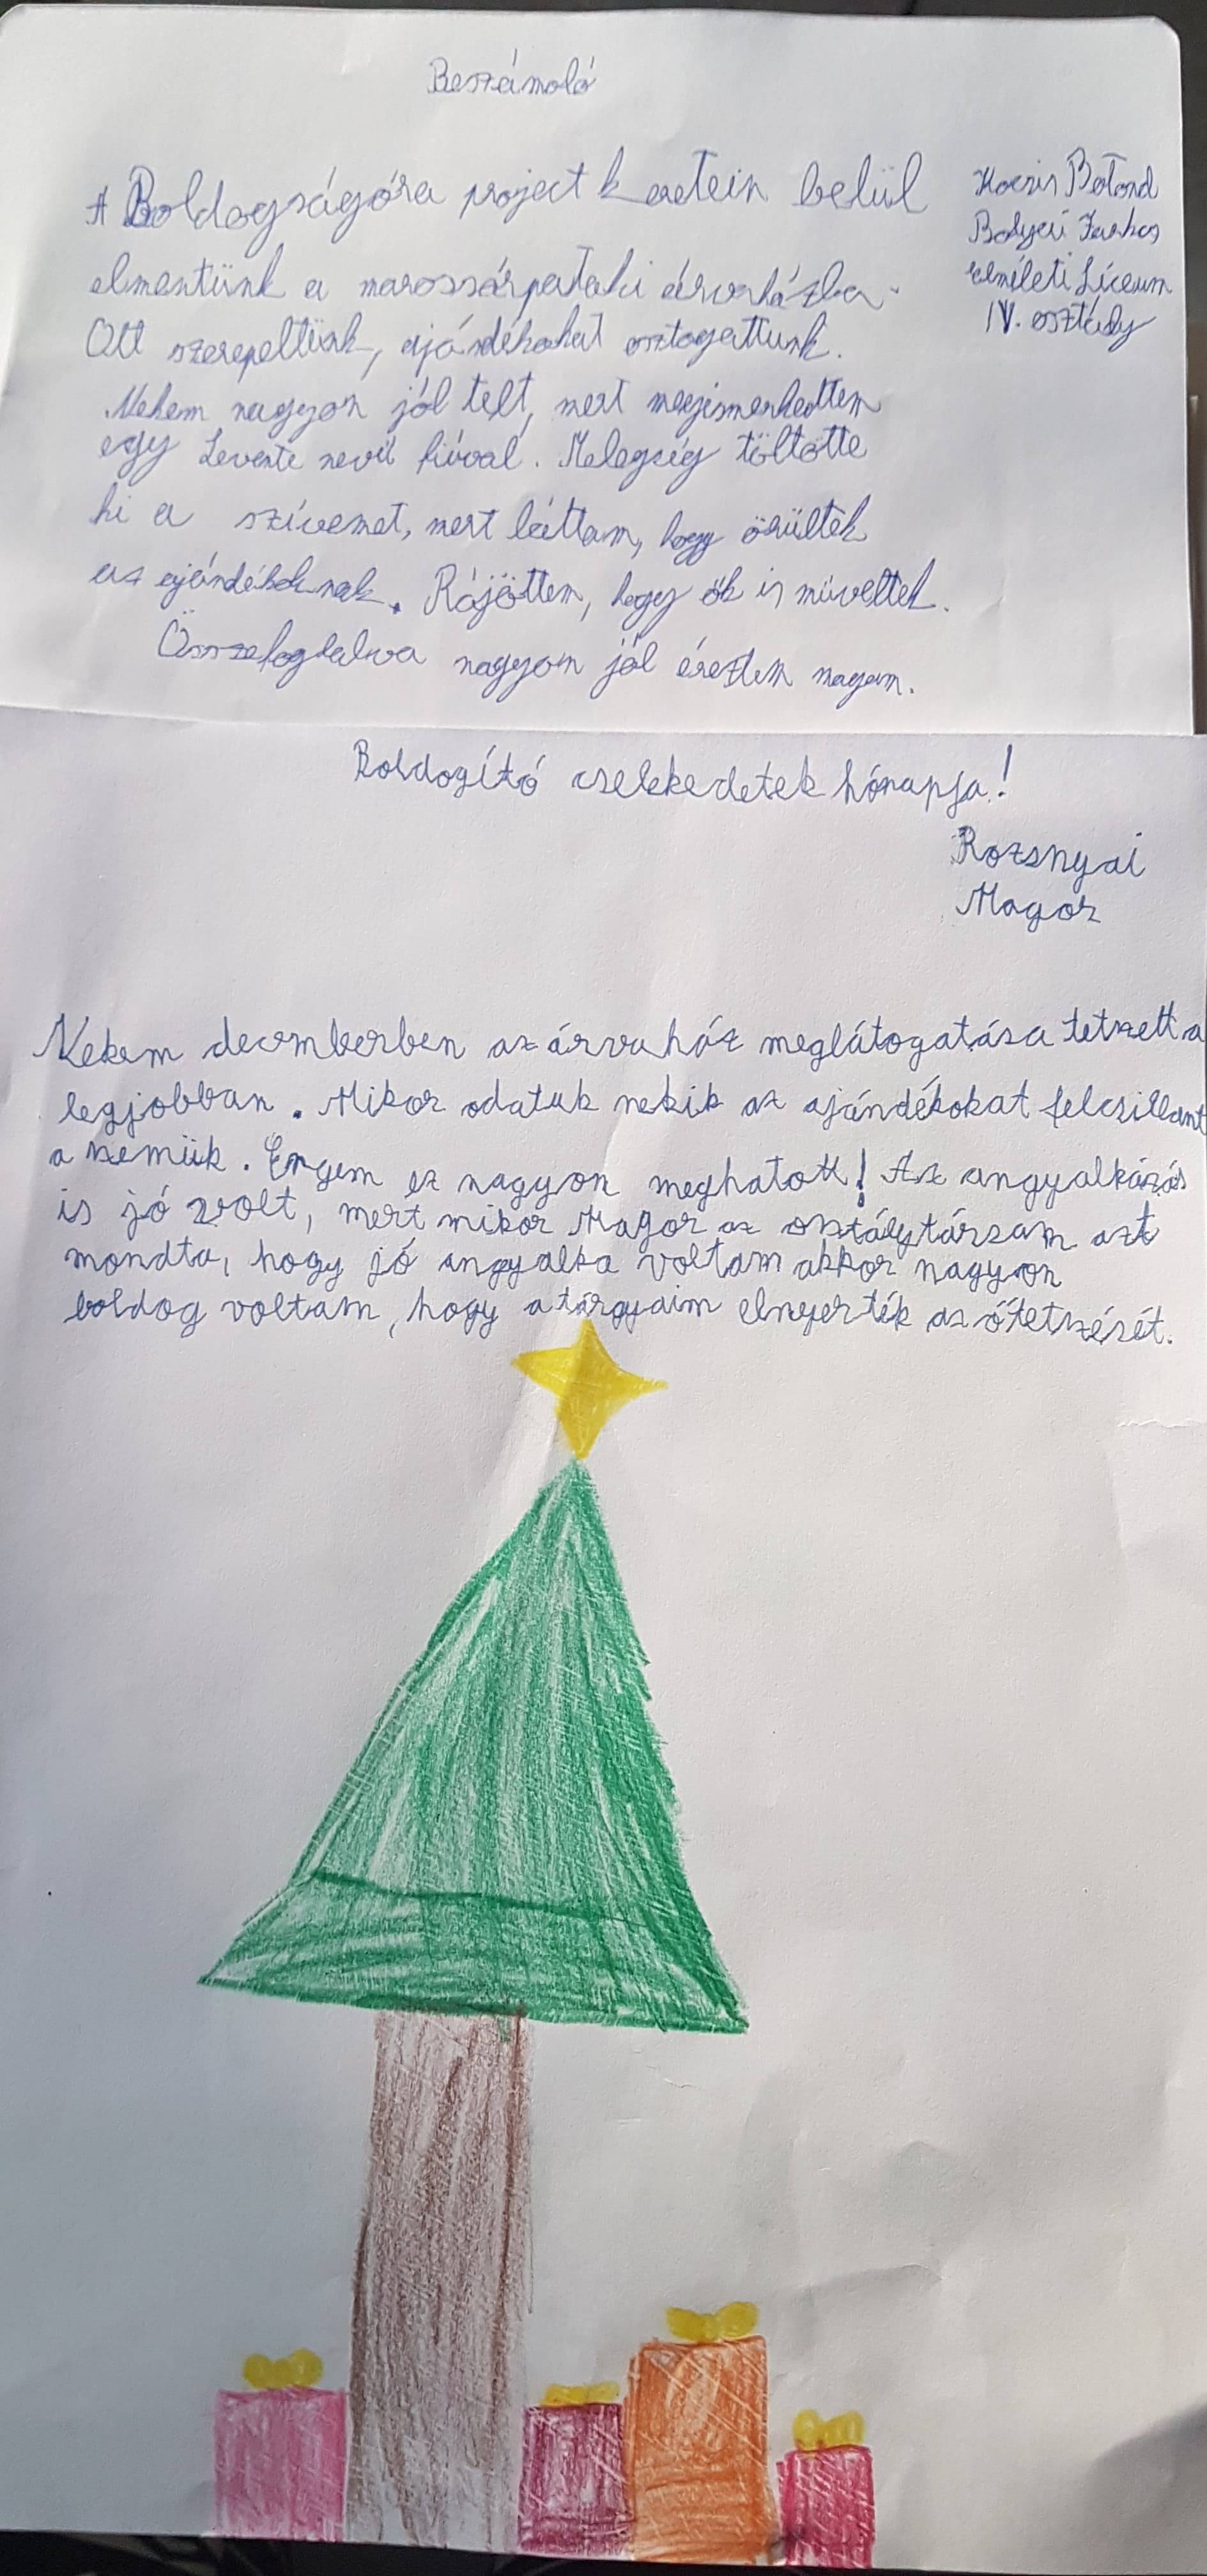 Beszámoló
A Boldogságóra project keretein belül
elmentünk a marossárpataki árvaházba.
Ott szerepeltünk, ajándékokat osztogattunk.
Nekem nagyon jól telt, mert megismerkedtem
egy Levente nevű fiúval. Melegség töltötte
ki a szívemet, mert láttam, hogy örültek
az ajándékoknak. Rájöttem, hogy ők is műveltek.
Összefoglalva nagyon jól éreztem magam.
Kocsis Botond
Bolyai Farkas
elméleti Líceum
IV. osztály
Boldogító cselekedetek hónapja!
Rozsnyai
Magor
Nekem decemberben az árvaház meglátogatása tetszett a
legjobban. Mikor odatuk nekik az ajándékokat felcsillant
a szemük. Engem ez nagyon meghatott! Az angyalkázás
is jó volt, mert mikor Magor az osztálytársam azt
mondta, hogy jó angyalka voltam akkor nagyon
boldog voltam, hogy a tárgyaim elnyerték az ő tetszését.